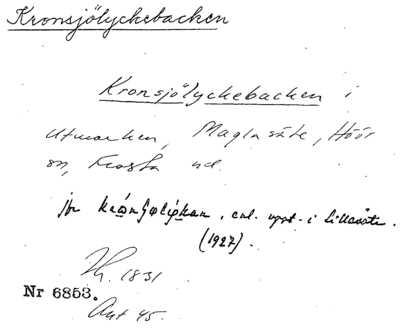 Kronsjölyckebacken
Kronsjölyckebacken i
utmarken, Maglasäte, Höör
sn, Frosta hd.
jfr enl. uppt. i Lillasäte.
(1927).
1831
Nr 6853.
Ant 45.